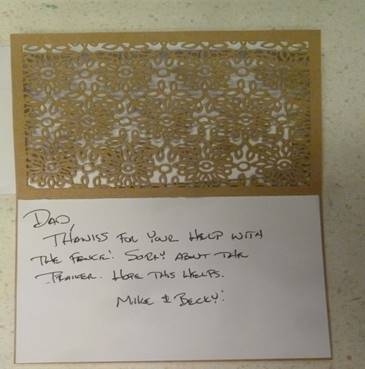 Dad
Thanks for your help with
the fence! Sorry about the
trailer. Hope this helps.
Mike & Becky!